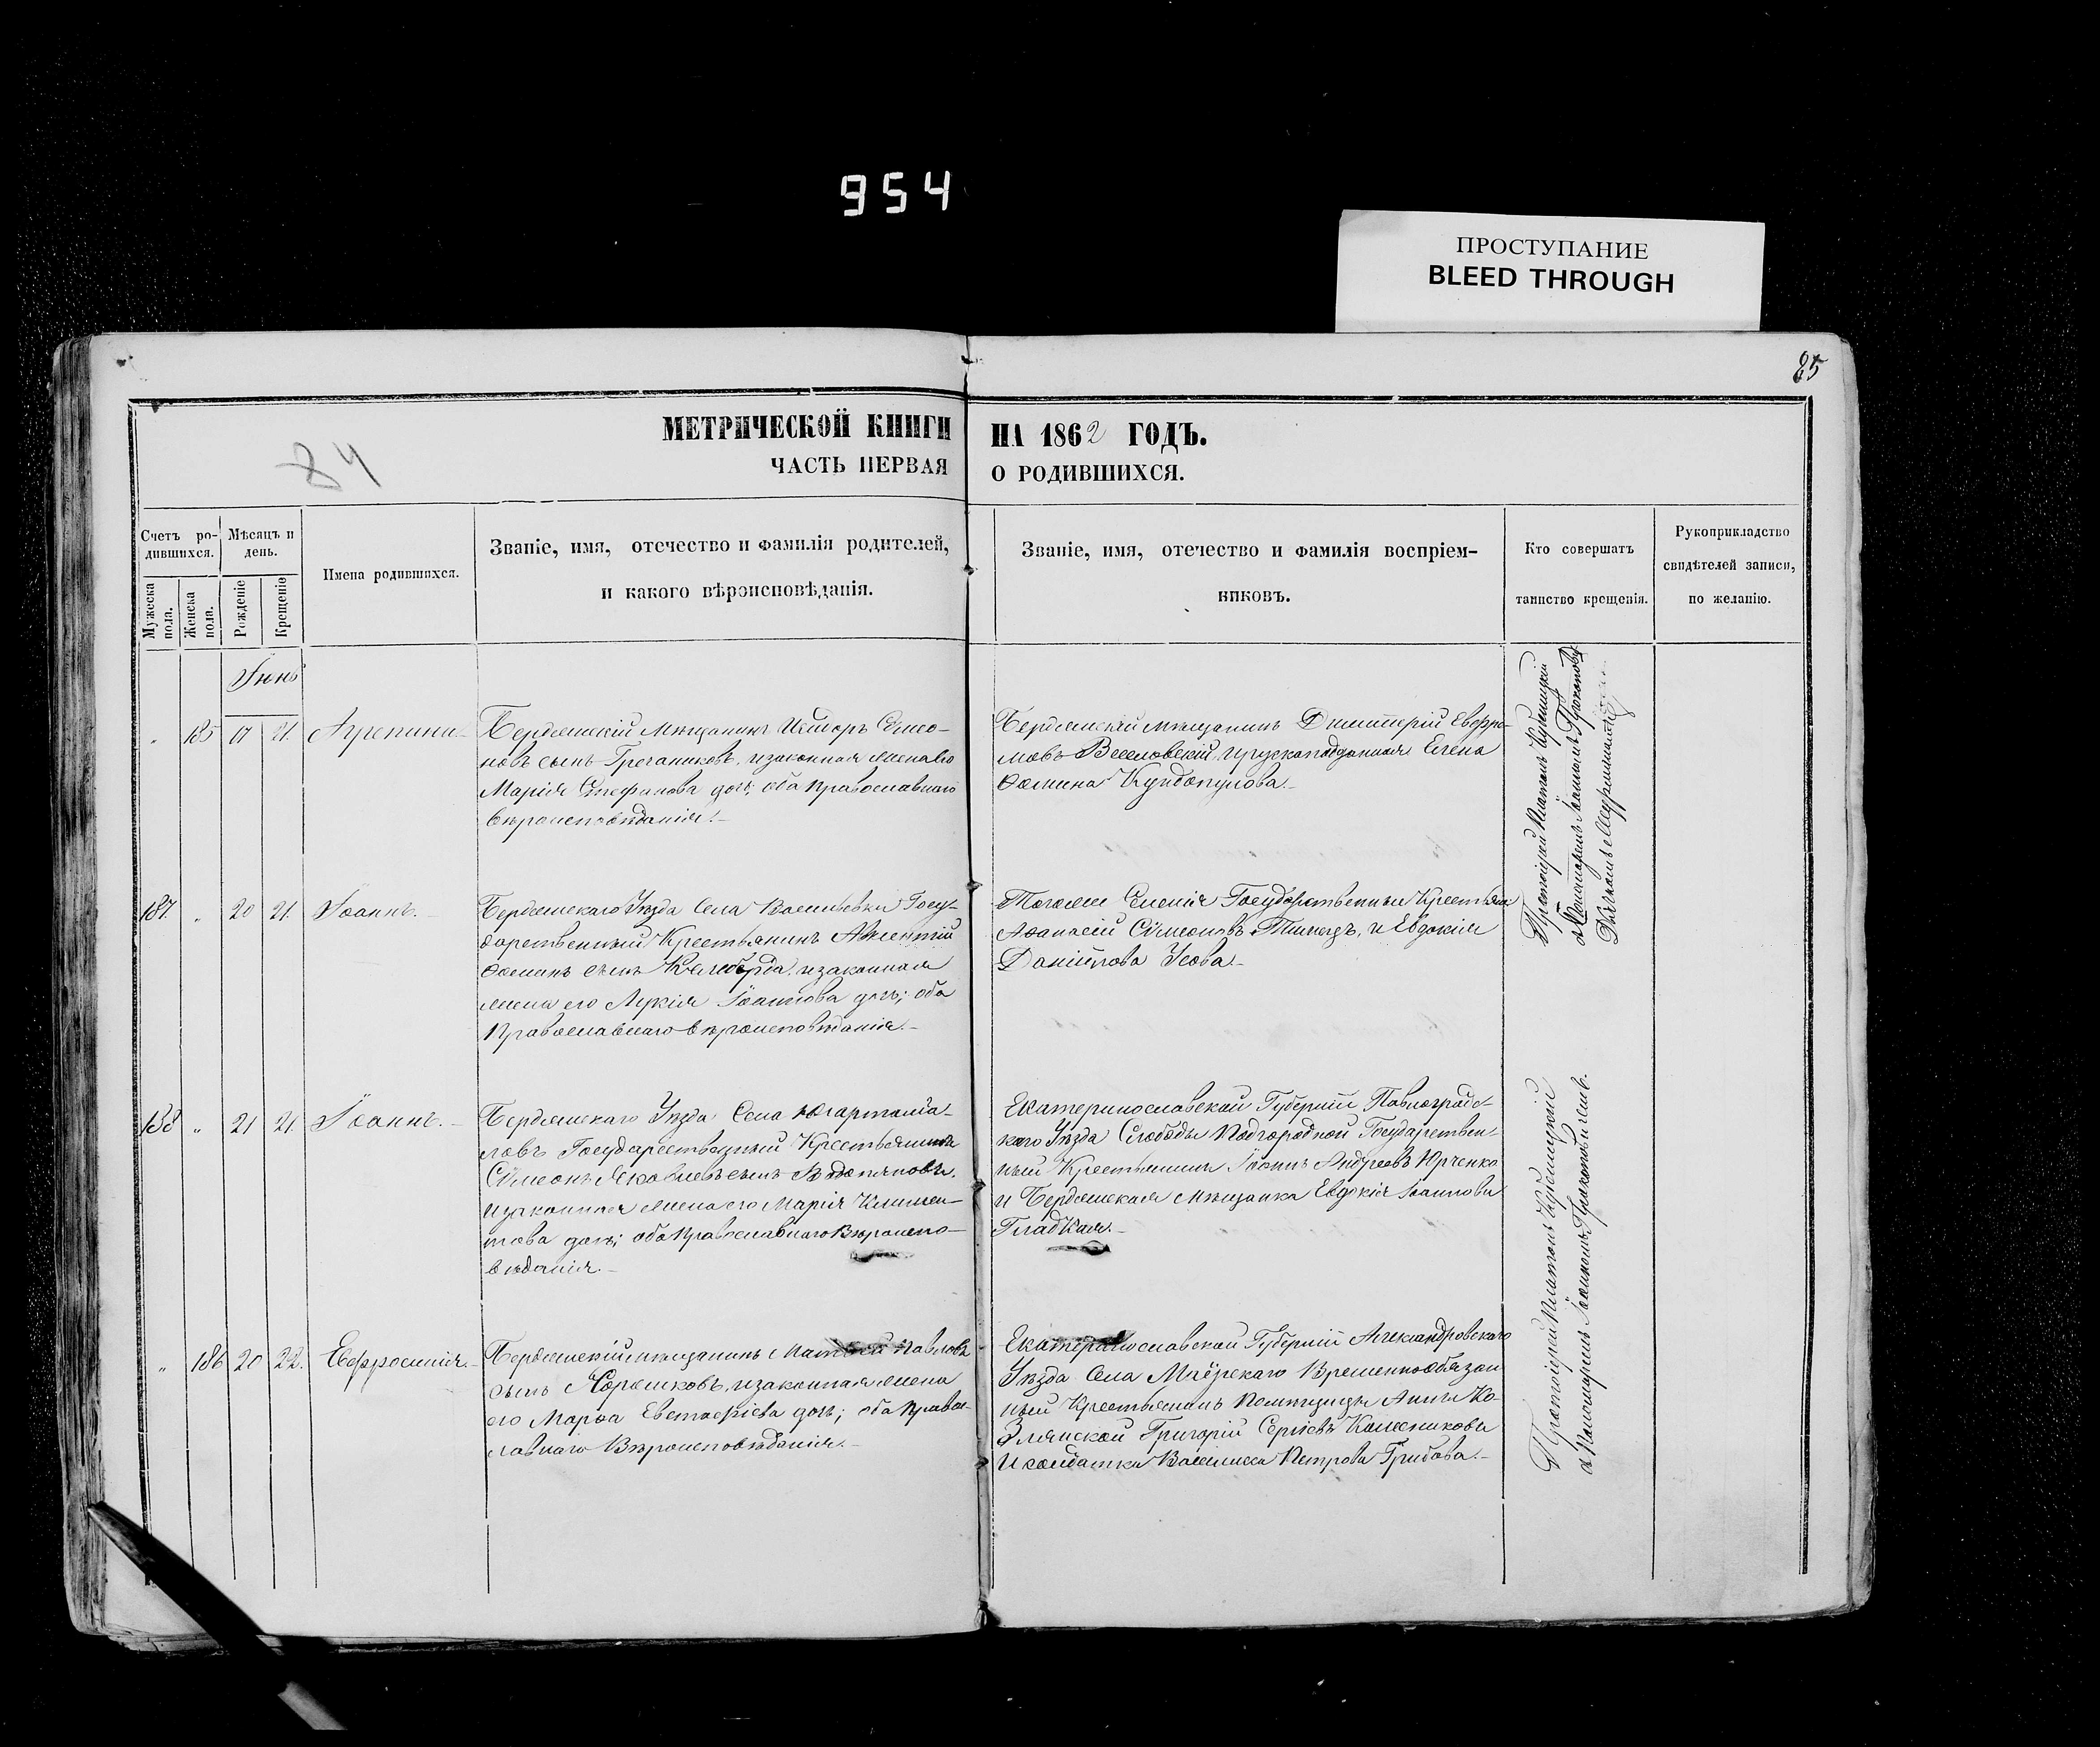 954
ПРОСТУПАНИЕ
BLEED THROUGH
85
84
МЕТРИЧЕСКОЙ КНИГИ НА 1862 ГОДЪ.
ЧАСТЬ ПЕРВАЯ О РОДИВШИХСЯ.
Счетъ ро-
дившихся.
Мужеска пола.
Женска пола.
Мѣсяцъ и
день.
Рожденіе
Крещеніе
Имена родившихся.
Званіе, имя, отечество и фамилія родителей,
и какого вѣроисповѣданія.
Званіе, имя, отечество и фамилія воспріем-
никовъ.
Кто совершатъ
таинство крещенія.
Рукоприкладство
свидѣтелей записи,
по желанію.
Іюнь
„ 185 17 21. Агрепина
Бердянскій Мѣщанинъ Симео-
новъ сынъ Гречаниковъ, и законная жена его
Марія Стефанова дочь; оба православнаго
вѣроисповѣданія.
Бердянскій мѣщанинъ Димитрій Евфре-
мовъ Веселовскій, Елена
Ѳомина
187. „ 20 21. Іоаннъ.
Бердянскаго Уѣзда Села Васильевки Госу-
дарственный Крестьянинъ
Ѳоминъ сынъ и законная
жена его Лукія Іоаннова дочь; оба
Православнаго вѣроисповѣданія.
Тогоже Селенія Государственный Крестьян
Аѳанасій Сѵмеоновъ и Евдокія
Даніилова Усова.
188 „ 21 21. Іоаннъ.
Бердянскаго Уѣзда Села
ловъ Государственный Крестьянинъ
Сѵмеонъ Яковлевъ сынъ
и законная жена его Марія Климен-
това дочь; оба Православнаго Вѣроиспо-
вѣданія.
Екатеринославской Губерніи Павлоградс-
каго Уѣзда Слободы Подгородной Государствен-
ный Крестьянинъ Іоаннъ Андреевъ Юрченко
и Бердянская мѣщанка Евдокія Іоаннова
Гладкая.
„ 186 20 22. Евфросинія.
Бердянскій мѣщанинъ Павловъ
сынъ и законная жена
его Марѳа Евстаѳіева дочь; оба Правос-
лавнаго Вѣроисповѣданія.
Екатеринославской Губерніи Александровскаго
Уѣзда Села Маёрскаго Временнообязан
ный Крестьянинъ Помѣщицы Анны Ко-
злянской Григорій Сергіевъ
и солдатка Василиса Петрова Грибова.
Протоіерей Платонъ
съ Пономаремъ Іоанномъ Прокоповичемъ.